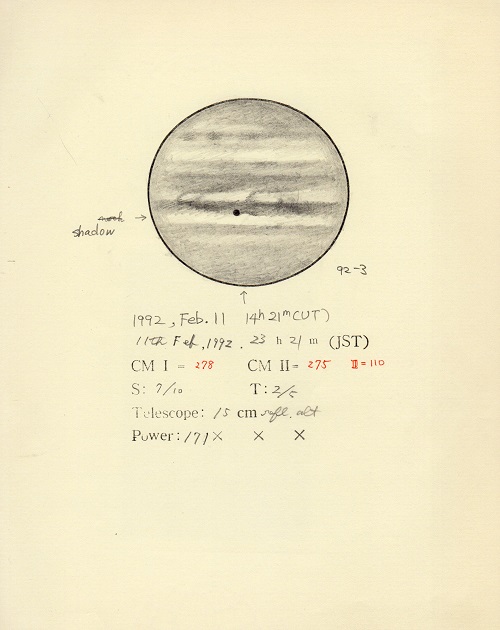 shadow
92-3
1992, Feb. 11 14h 21m (UT)
11th Feb, 1992. 23 h 21 m (JST)
CM I = 278 CM II = 275 III = 110
S: 7/10 T: 2/5
Telescope: 15 cm refl. alt
Power: 171× × ×